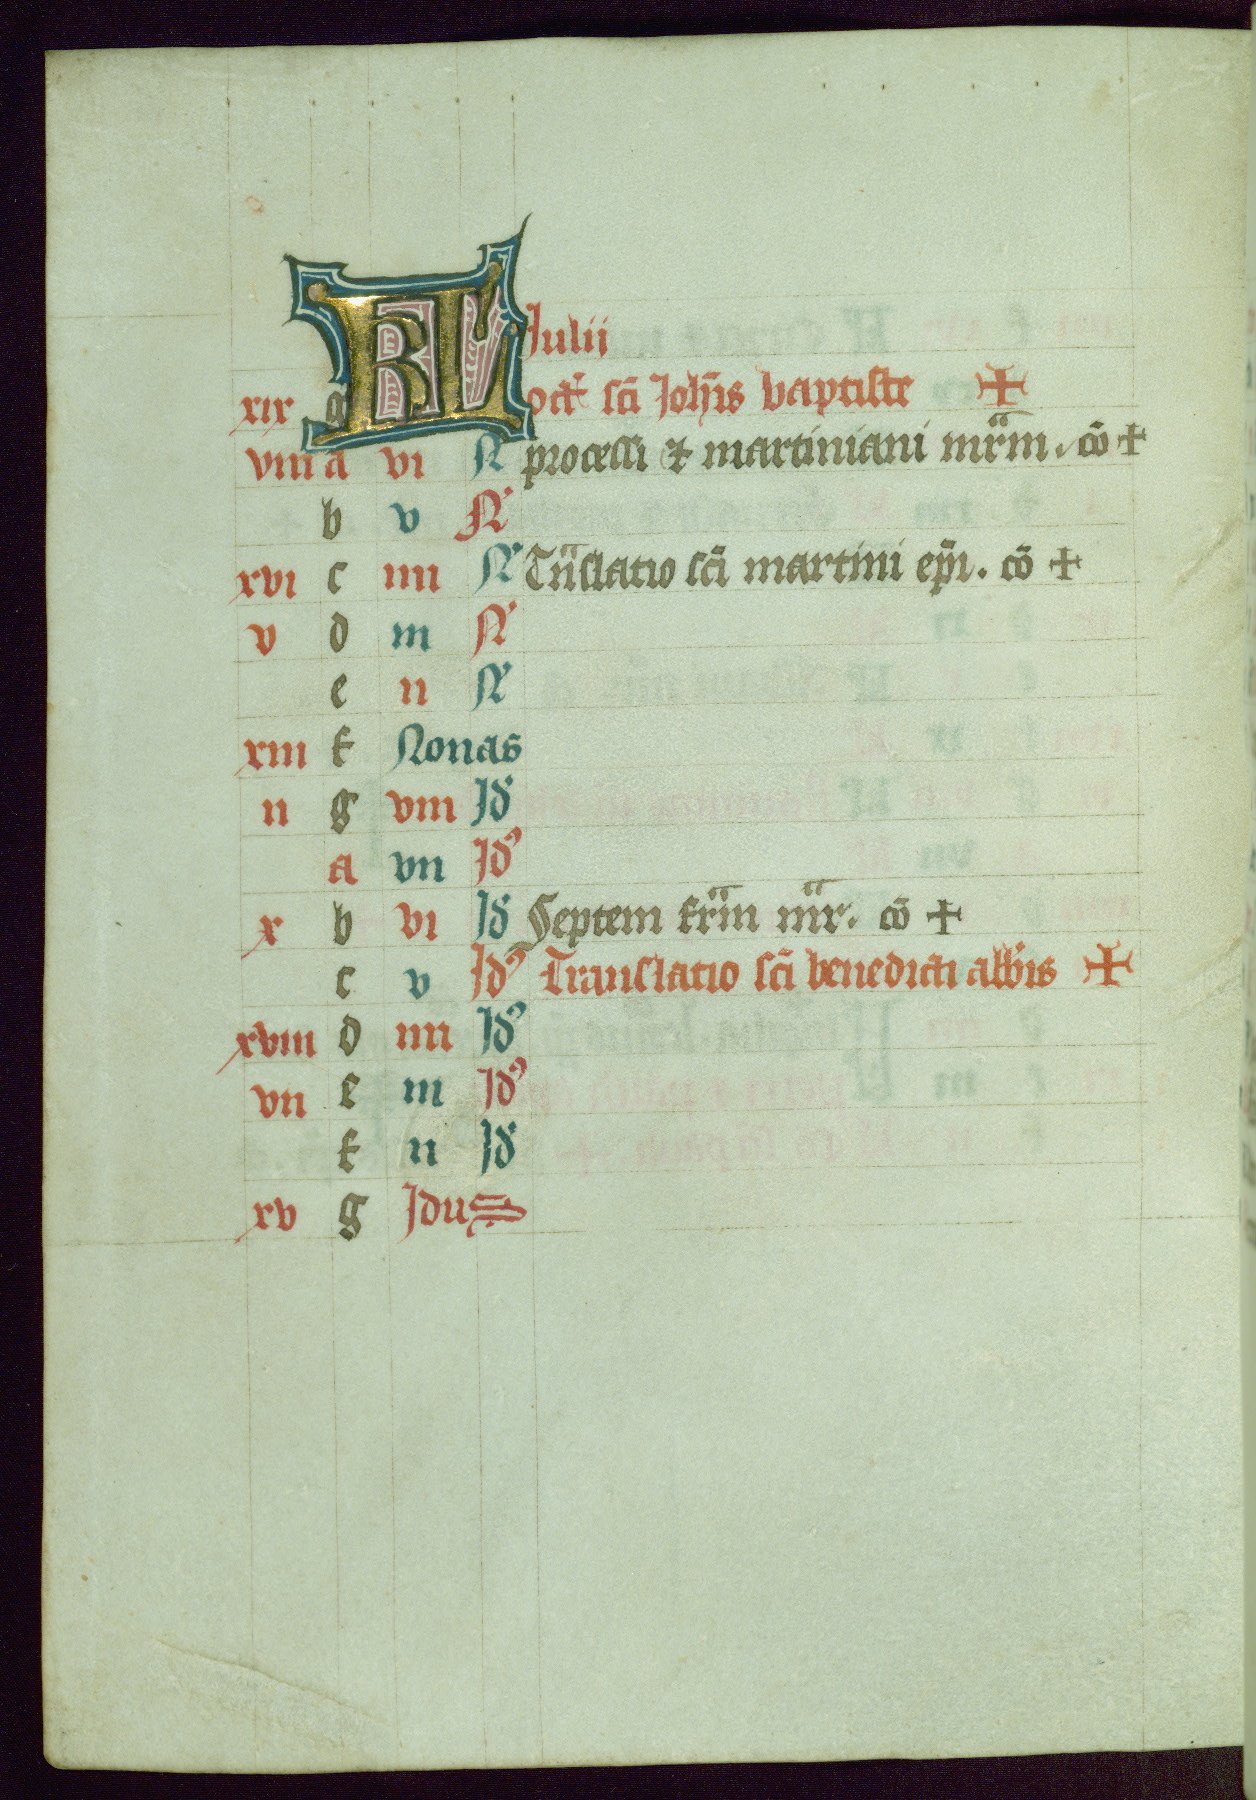 KL Julii
xix g oct̄ sc̄i Joh̄is baptiste ✠
viii a vi N̓ processi & martiniani mr̄m. cō ✠
b v N̓
xvi c iiii N̓ Tn̄slatio sc̄i martini ep̄i. cō ✠
v d iii N̓
e ii N̓
xiii f Nonas
ii g viii Jd̓
a vii Jd̓
x b vi Jd̓ Septem fr̄m mr̄. cō ✠
c v Jd̓ Translatio sc̄i benedicti abb̄is ✠
xviii d iiii Jd̓
vii e iii Jd̓
f ii Jd̓
xv g Jdus